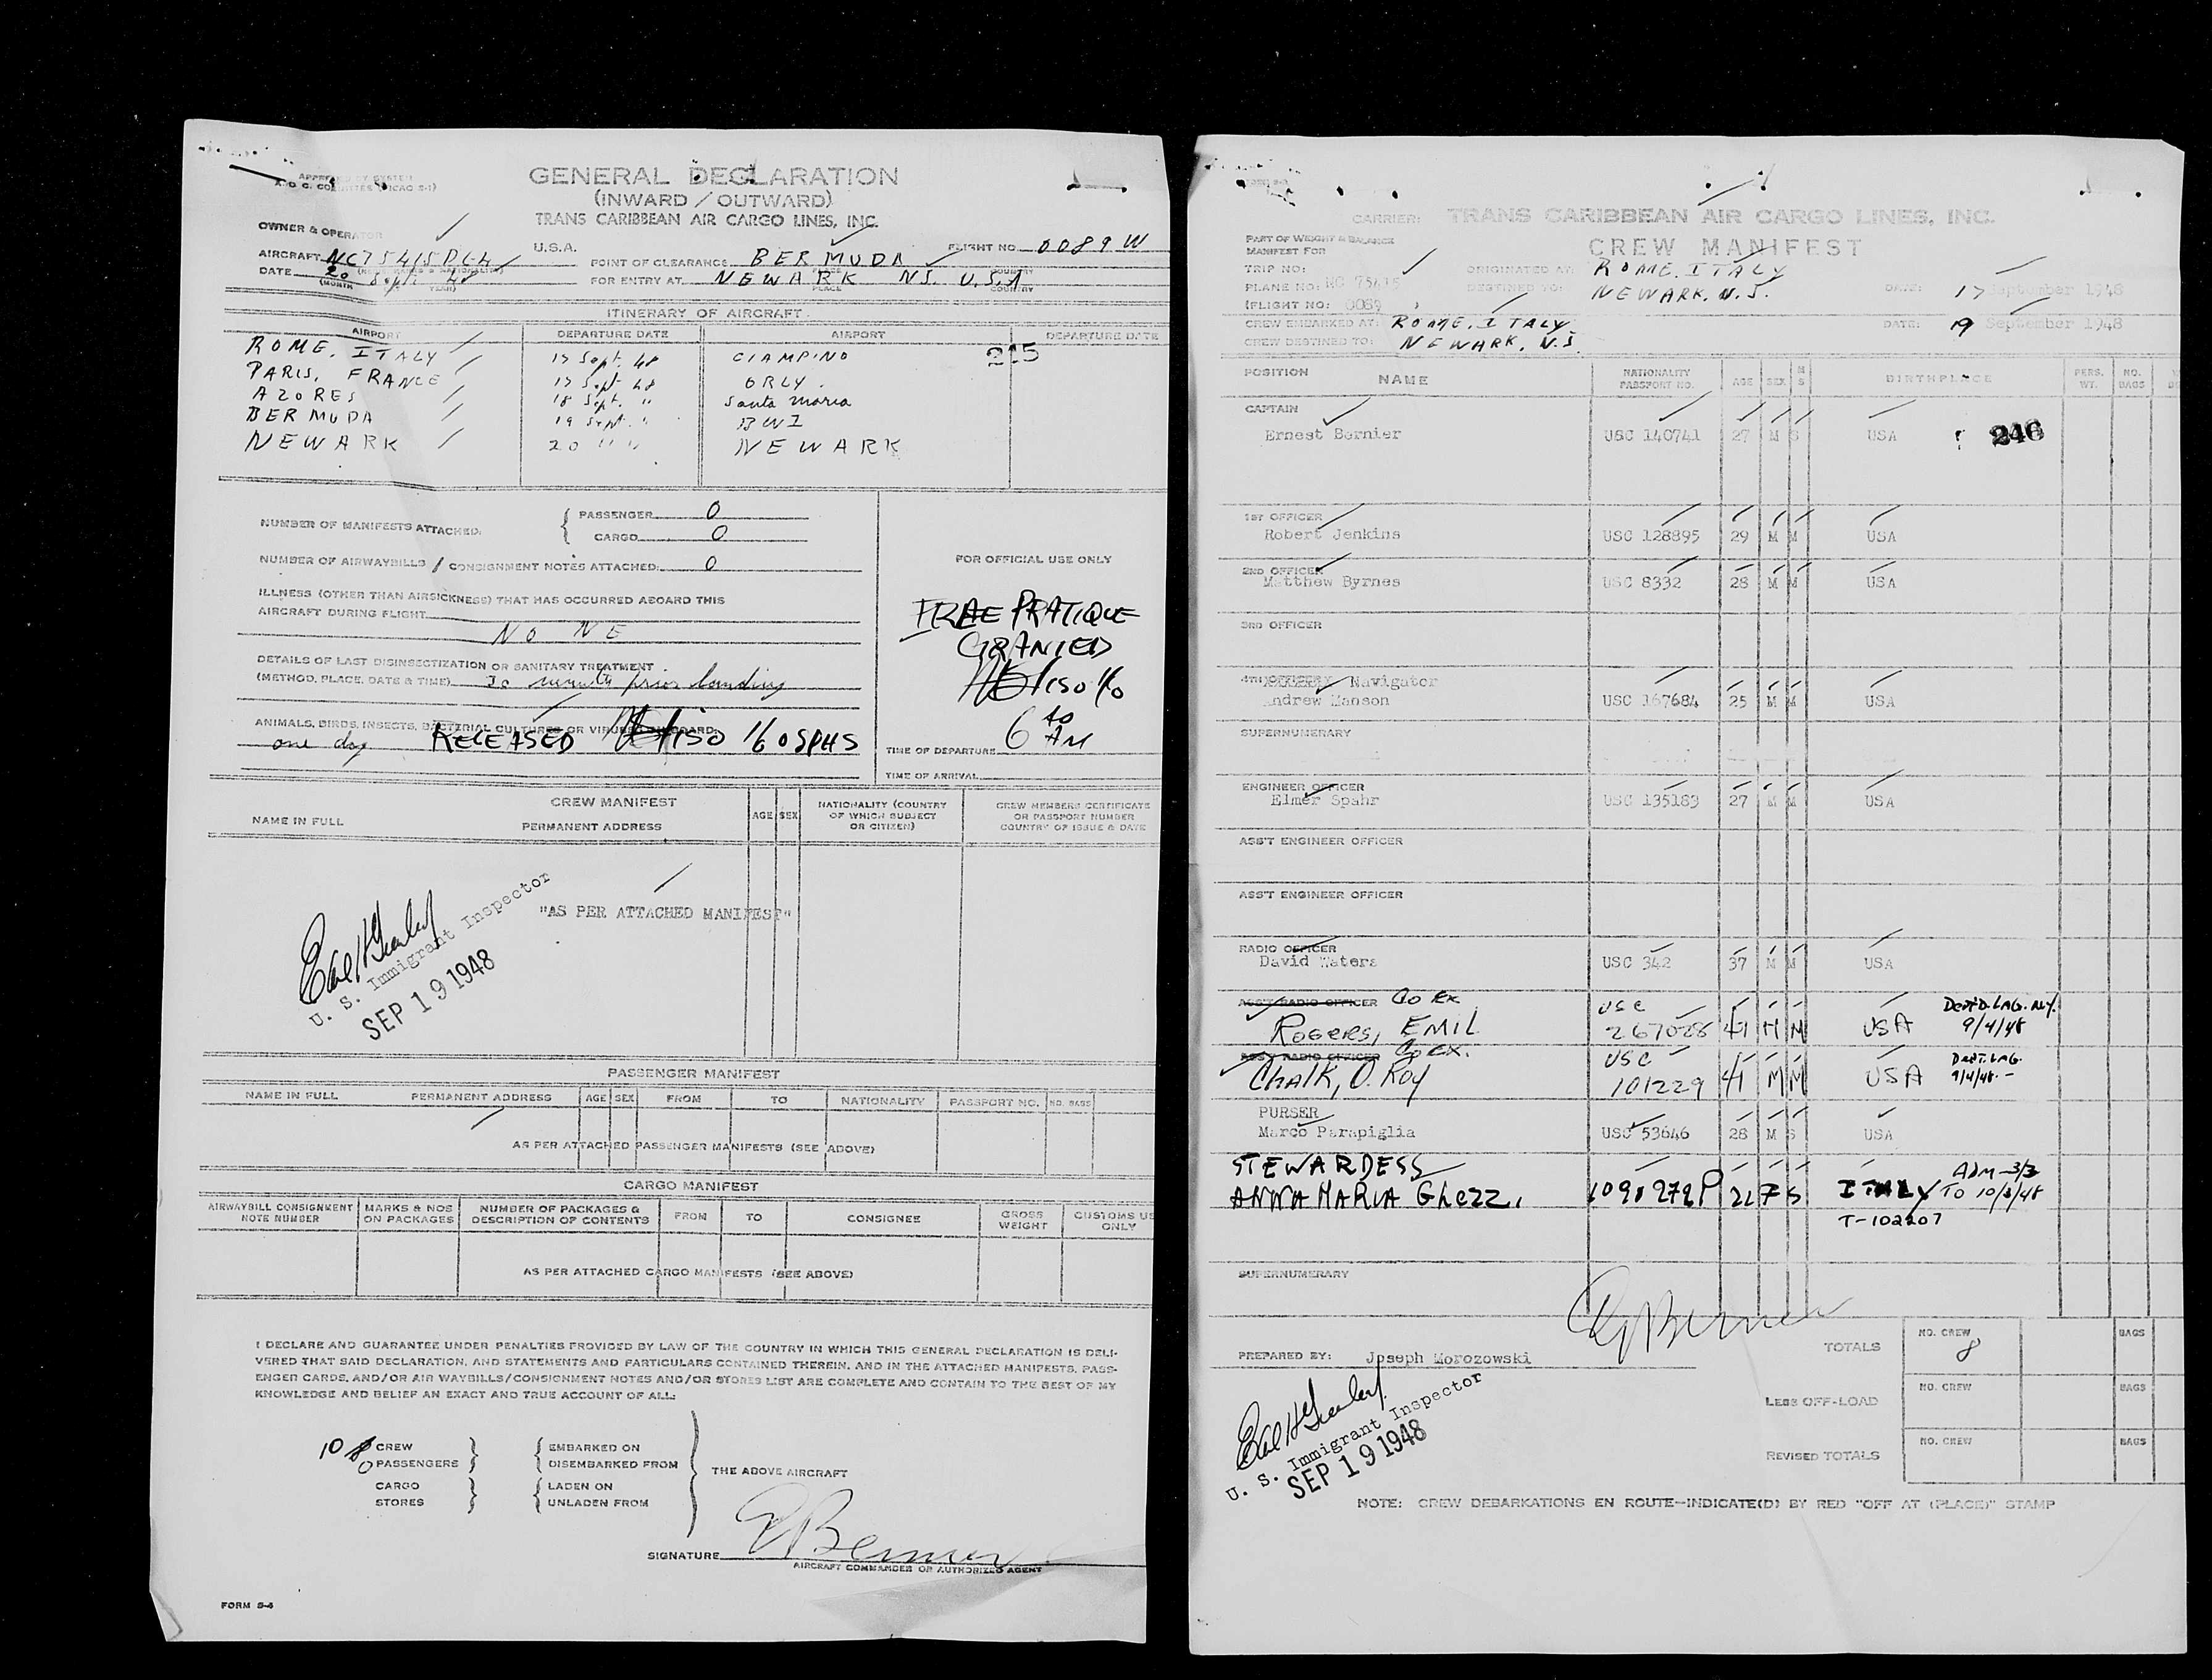 GENERAL DECLARATION
(INWARD / OUTWARD)
TRANS CARIBBEAN AIR CARGO LINES, INC.
OWNER & OPERATOR
U.S.A.
AIRCRAFT NC75415 DC4
POINT OF CLEARANCE BERMUDA
FLIGHT NO. 0089 W
DATE 20 Sept. 48
FOR ENTRY AT NEWARK NJ. U.S.A
PLACE COUNTRY
ITINERARY OF AIRCRAFT
AIRPORT DEPARTURE DATE AIRPORT DEPARTURE DATE
ROME, ITALY 17 Sept. 48 CIAMPINO 215
PARIS, FRANCE 17 Sept 48 ORLY.
AZORES 18 Sept. " Santa Maria
BERMUDA 19 Sept. " BWI
NEWARK 20 " " NEWARK
NUMBER OF MANIFESTS ATTACHED: PASSENGER 0
CARGO 0
NUMBER OF AIRWAYBILLS / CONSIGNMENT NOTES ATTACHED: 0
FOR OFFICIAL USE ONLY
ILLNESS (OTHER THAN AIRSICKNESS) THAT HAS OCCURRED ABOARD THIS
AIRCRAFT DURING FLIGHT
NONE
FREE PRATIQUE
GRANTED
DETAILS OF LAST DISINSECTIZATION OR SANITARY TREATMENT
(METHOD, PLACE, DATE & TIME) 30 minutes prior landing
ANIMALS, BIRDS, INSECTS, BACTERIAL CULTURES OR VIRUSES ON BOARD:
one dog RELEASED
6 40 AM
TIME OF DEPARTURE
TIME OF ARRIVAL
CREW MANIFEST
NAME IN FULL PERMANENT ADDRESS AGE SEX NATIONALITY (COUNTRY OF WHICH SUBJECT OR CITIZEN) CREW MEMBERS CERTIFICATE OR PASSPORT NUMBER COUNTRY OF ISSUE & DATE
"AS PER ATTACHED MANIFEST"
U. S. Immigrant Inspector
SEP 19 1948
PASSENGER MANIFEST
NAME IN FULL PERMANENT ADDRESS AGE SEX FROM TO NATIONALITY PASSPORT NO. NO. BAGS
AS PER ATTACHED PASSENGER MANIFESTS (SEE ABOVE)
CARGO MANIFEST
AIRWAYBILL CONSIGNMENT NOTE NUMBER MARKS & NOS ON PACKAGES NUMBER OF PACKAGES & DESCRIPTION OF CONTENTS FROM TO CONSIGNEE GROSS WEIGHT CUSTOMS US ONLY
AS PER ATTACHED CARGO MANIFESTS (SEE ABOVE)
I DECLARE AND GUARANTEE UNDER PENALTIES PROVIDED BY LAW OF THE COUNTRY IN WHICH THIS GENERAL DECLARATION IS DELI-
VERED THAT SAID DECLARATION, AND STATEMENTS AND PARTICULARS CONTAINED THEREIN, AND IN THE ATTACHED MANIFESTS, PASS-
ENGER CARDS, AND/OR AIR WAYBILLS/CONSIGNMENT NOTES AND/OR STORES LIST ARE COMPLETE AND CONTAIN TO THE BEST OF MY
KNOWLEDGE AND BELIEF AN EXACT AND TRUE ACCOUNT OF ALL:
10 CREW EMBARKED ON
0 PASSENGERS DISEMBARKED FROM
THE ABOVE AIRCRAFT
CARGO LADEN ON
STORES UNLADEN FROM
SIGNATURE E Bernier
AIRCRAFT COMMANDER OR AUTHORIZED AGENT
FORM S-4
CARRIER: TRANS CARIBBEAN AIR CARGO LINES, INC.
PART OF WEIGHT & BALANCE
MANIFEST FOR
CREW MANIFEST
TRIP NO: ORIGINATED AT: ROME, ITALY
PLANE NO: NC 75415 DESTINED TO: NEWARK, N.J. DATE: 17 September 1948
(FLIGHT NO: 0089
CREW EMBARKED AT: ROME, ITALY. DATE: 19 September 1948
CREW DESTINED TO: NEWARK, N.J.
POSITION NAME NATIONALITY PASSPORT NO. AGE SEX M S BIRTHPLACE PERS. WT. NO. BAGS
CAPTAIN
Ernest Bernier USC 140741 27 M S USA 246
1ST OFFICER
Robert Jenkins USC 128895 29 M M USA
2ND OFFICER
Matthew Byrnes USC 8332 28 M M USA
3RD OFFICER
4TH OFFICER Navigator
Andrew Manson USC 167684 25 M M USA
SUPERNUMERARY
ENGINEER OFFICER
Elmer Spahr USC 135183 27 M M USA
ASS'T ENGINEER OFFICER
ASS'T ENGINEER OFFICER
RADIO OFFICER
David Waters USC 342 37 M M USA
ASS'T RADIO OFFICER Co Ex
ROGERS, EMIL USC 267028 41 M M USA DEPTD. LAG. N.Y. 9/4/48
ASS'T RADIO OFFICER Co Ex.
Chalk, O. Roy USC 101229 41 M M USA DEPT. LAG. 9/4/48.-
PURSER
Marco Parapiglia USC 53646 28 M S USA
STEWARDESS
ANNA MARIA Ghezzi 1090272P 22 F S ITALY ADM-3/3 TO 10/3/48
T-102207
SUPERNUMERARY
E Bernier
PREPARED BY: Joseph Morozowski
TOTALS NO. CREW 8 BAGS
LESS OFF-LOAD NO. CREW BAGS
REVISED TOTALS NO. CREW BAGS
U. S. Immigrant Inspector
SEP 19 1948
NOTE: CREW DEBARKATIONS EN ROUTE-INDICATE(D) BY RED "OFF AT (PLACE)" STAMP